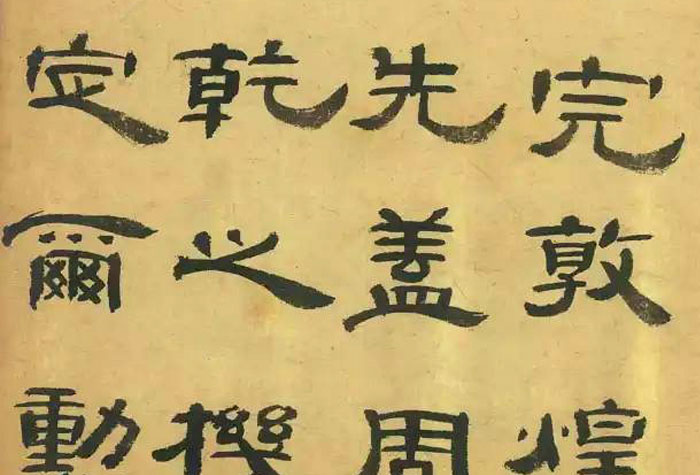 完敦煌
先盖周
乾之機
定爾勳